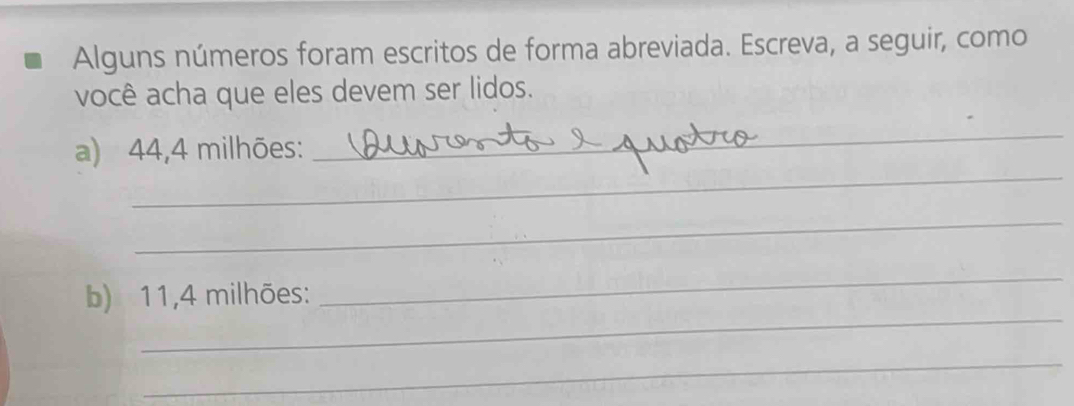 Alguns números foram escritos de forma abreviada. Escreva, a seguir, como
você acha que eles devem ser lidos.
a) 44,4 milhões: Quarenta e quatro
b) 11,4 milhões: